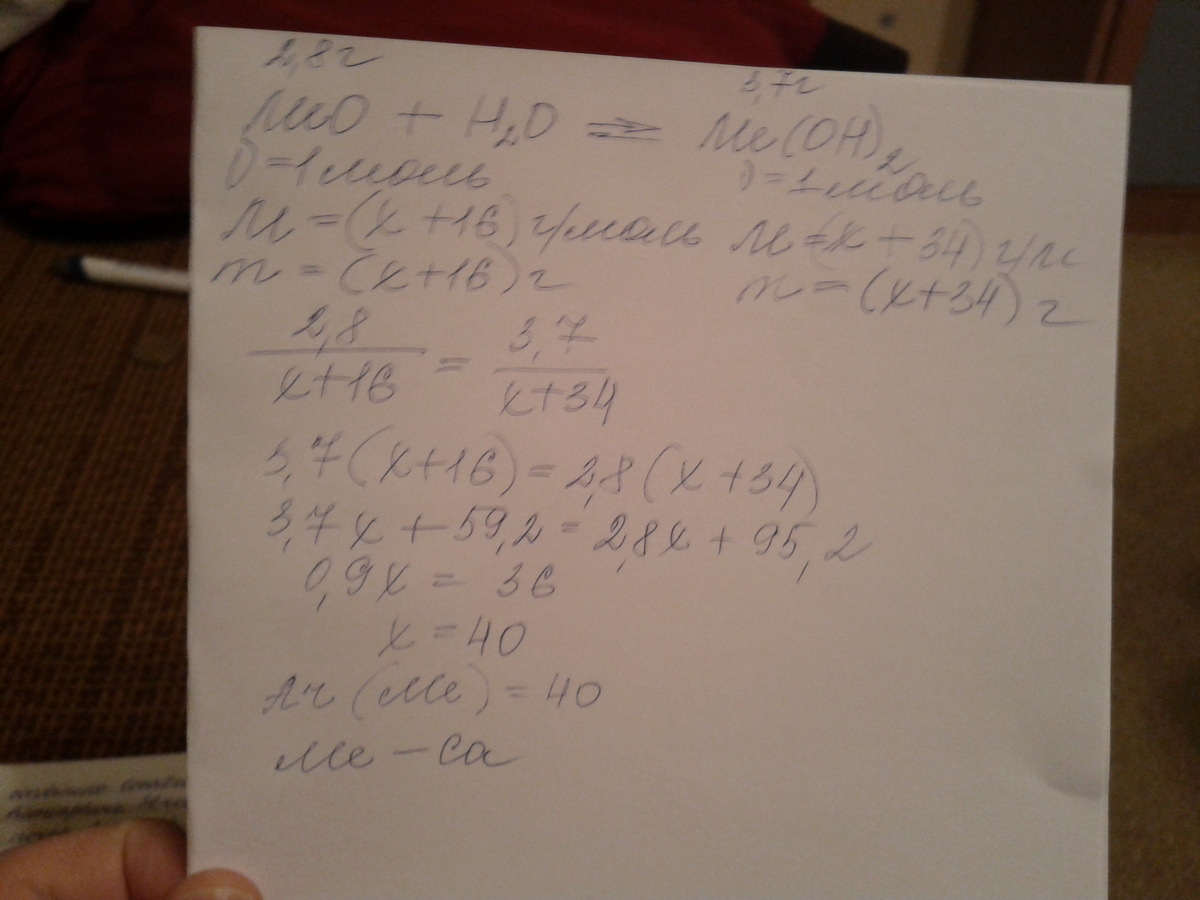 2,8г
3,7г
MeO + H₂O ⇌ Me(OH)₂
ν=1моль
ν=1моль
M=(x+16)г/моль
M=(x+34)г/м
m=(x+16)г
m=(x+34)г
2,8/x+16 = 3,7/x+34
3,7(x+16)=2,8(x+34)
3,7x+59,2=2,8x+95,2
0,9x = 36
x=40
Ar(Me)=40
Me-Ca